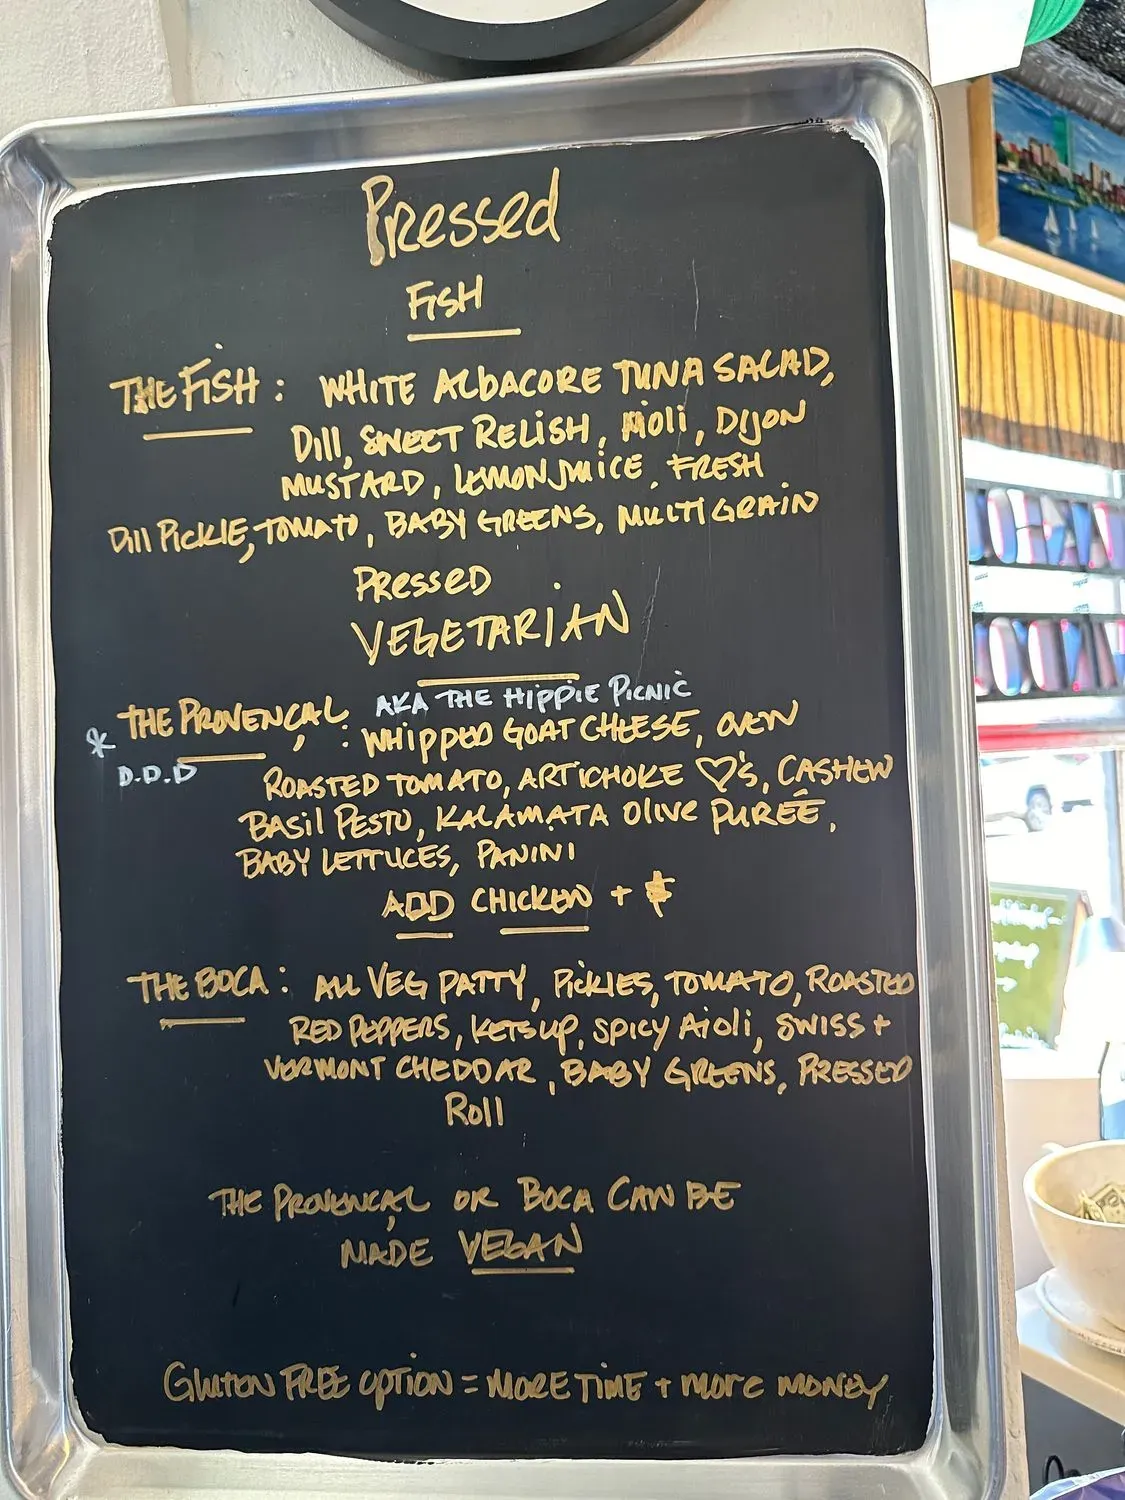 Pressed
FiSH
THE FiSH: WHITE ALBACORE TUNA SALAD,
Dill, SWEET RELISH, Aioli, DIJON
MUSTARD, LEMON JUICE, FRESH
Dill PiCKLE, TOMATO, BABY GREENS, MULTI GRAIN
PRESSED
VEGETARIAN
AKA THE HIPPIE PICNIC
* THE PROVENÇAL: WHIPPED GOAT CHEESE, OVEN
D.D.D ROASTED TOMATO, ARTICHOKE ♡'s, CASHEW
BASIL PESTO, KALAMATA OLIVE PURÉE,
BABY LETTUCES, PANINI
ADD CHICKEN + $
THE BOCA: ALL VEG PATTY, PICKLES, TOMATO, ROASTED
RED PEPPERS, KETSUP, SPICY AIOLI, SWISS +
VERMONT CHEDDAR, BABY GREENS, PRESSED
Roll
THE PROVENÇAL OR BOCA CAN BE
MADE VEGAN
GLUTEN FREE OPTION = MORE TIME + MORE MONEY